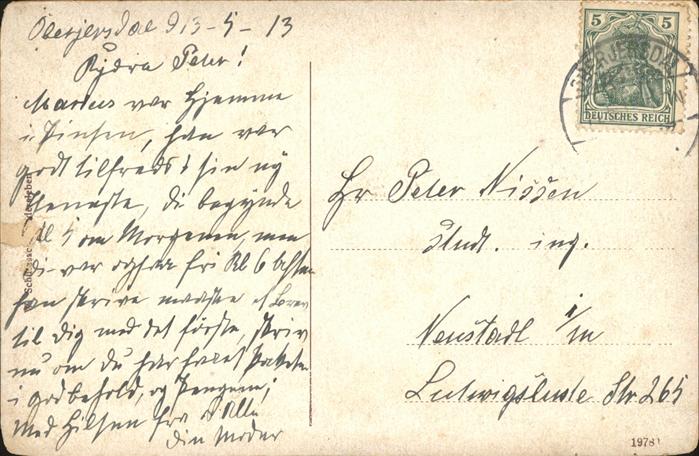 Oberjersdal d 13-5-13
Kjdra Peter!
Marius var hjemme
i Pinsen, han var
godt tilfreds i sin ny
Tjeneste, di begynde
Kl 5 om Morgenen, men
di var ogsaa fri Kl 6
han skrive næste et Brev
til dig med det förste, skriv
nu om du har faaet Pakken
i godbehold, og Pengene;
Med Hilsen fra Alle
din Moder
5 5
DEUTSCHES REICH
OBERJERSDAL
Hr Peter Nissen
Stud. ing.
Neustadl i/m
Ludwigsluste Str. 265
19781